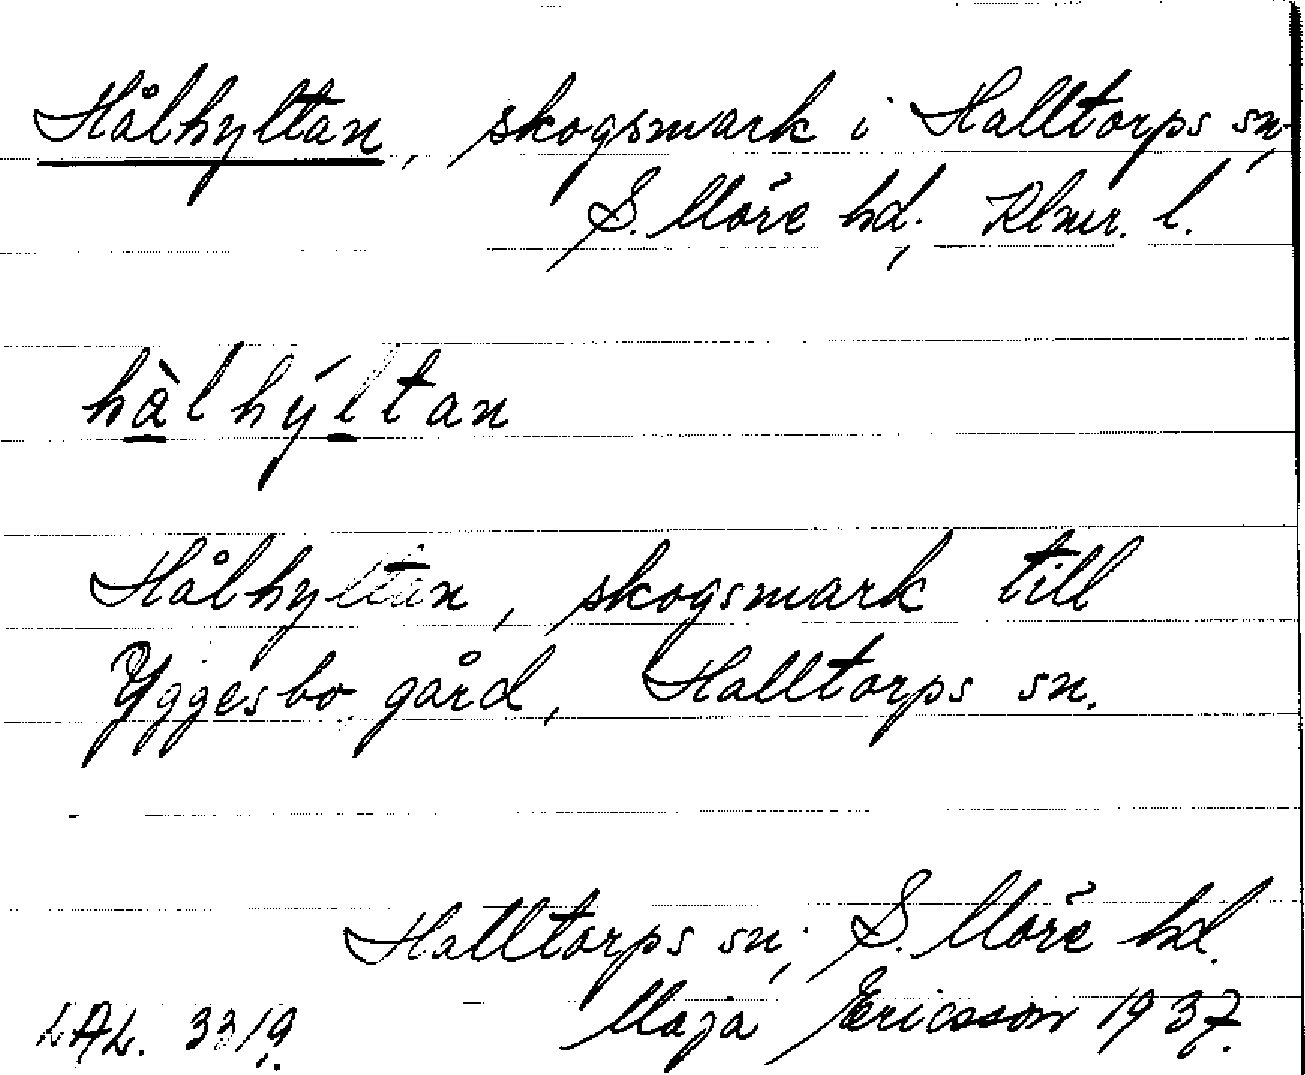 Hålhyltan, skogsmark i Halltorps sn,
S. Möre hd., Klmr. l.
hàlhýltan
Hålhyltan, skogsmark till
Yggesbo gård, Halltorps sn.
Halltorps sn., S. Möre hd.
LAL. 3319. Maja Ericsson 1937.